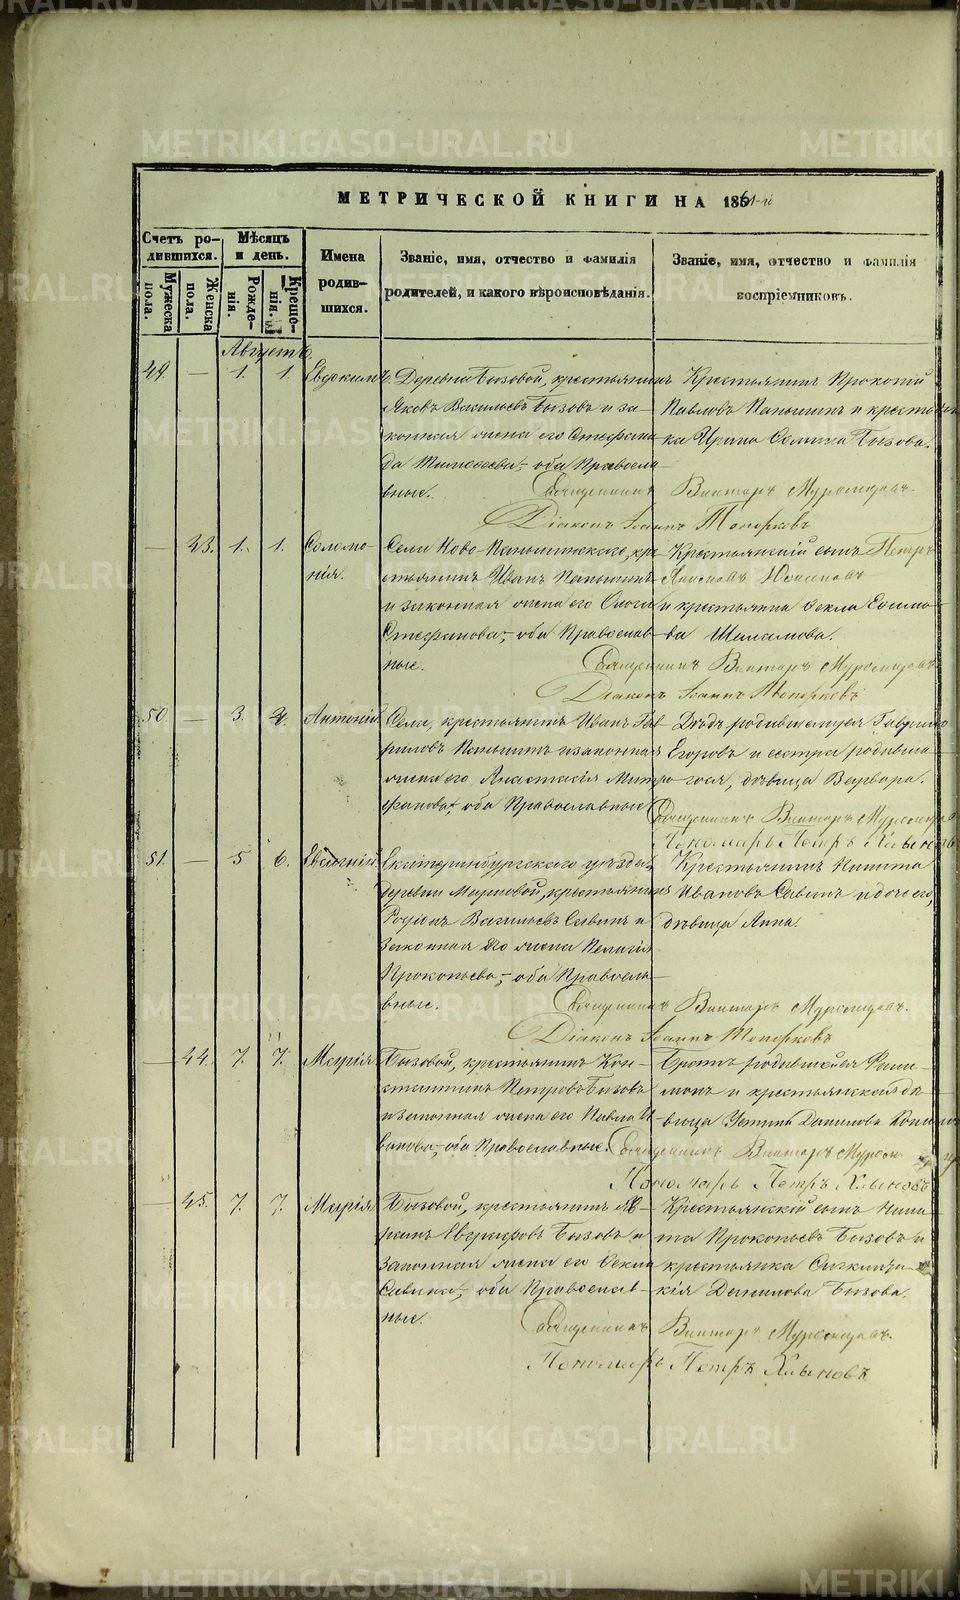 МЕТРИЧЕСКОЙ КНИГИ НА 1861-й
Счетъ родившихся.
Мужеска пола.
Женска пола.
Мѣсяцъ и день.
Рожденія.
Крещенія.
Имена родившихся.
Званіе, имя, отчество и фамилія родителей, и какого вѣроисповѣданія.
Званіе, имя, отчество и фамилія воспріемниковъ.
Августъ.
49. — 1. 1. Евдокимъ.
Деревни Бызовой, крестьянинъ
Яковъ Васильевъ Бызовъ и за-
конная жена его Стефани-
да Тимофеева, оба Правосла-
вные.
Крестьянинъ Прокопій
Павловъ Паньшинъ и крестьян-
ка Ирина Бызова.
Священникъ Викторъ
Діаконъ Іоаннъ Топорковъ
— 43. 1. 1. Соломо-
нія.
Села Ново-Паньшинскаго, кре-
стьянинъ Иванъ Паньшинъ
и законная жена его
Стефанова, оба Православ-
ные.
Крестьянскій сынъ Петръ
и крестьянка Фекла Ефимо-
ва
Священникъ Викторъ
Діаконъ Іоаннъ Топорковъ
50. — 3. 3. Антоній
Села, крестьянинъ Иванъ Гав-
риловъ Паньшинъ и законная
жена его Анастасія Митро-
фанова, оба Православные
Дѣдъ родившагося Гавріилъ
Егоровъ и сестра родивша-
гося, дѣвица Варвара.
Священникъ Викторъ
Пономарь Петръ Хлыновъ
51. — 5 6. Евгеній
Екатеринбургскаго уѣзда,
деревни крестьянинъ
Родіонъ Васильевъ Савинъ и
законная его жена Пелагія
Прокопьева, оба Правосла-
вные.
Крестьянинъ Никита
Ивановъ Савинъ и дочь его,
дѣвица Анна.
Священникъ Викторъ
Діаконъ Іоаннъ Топорковъ
— 44. 7. 7. Марія
Бызовой, крестьянинъ Кон-
стантинъ Петровъ Бызовъ
и законная жена его Павла И-
ванова, оба Православные.
Братъ родившейся Фили-
монъ и крестьянская дѣ-
вица Данилова
Священникъ Викторъ
Пономарь Петръ Хлыновъ
— 45. 7. 7. Марія
Бызовой, крестьянинъ
Евграфовъ Бызовъ и
законная жена его Фекла
Савина, оба Православ-
ные.
Крестьянскій сынъ Ники-
та Прокопьевъ Бызовъ и
крестьянка
Данилова Бызова.
Священникъ Викторъ
Пономарь Петръ Хлыновъ
METRIKI.GASO-URAL.RU